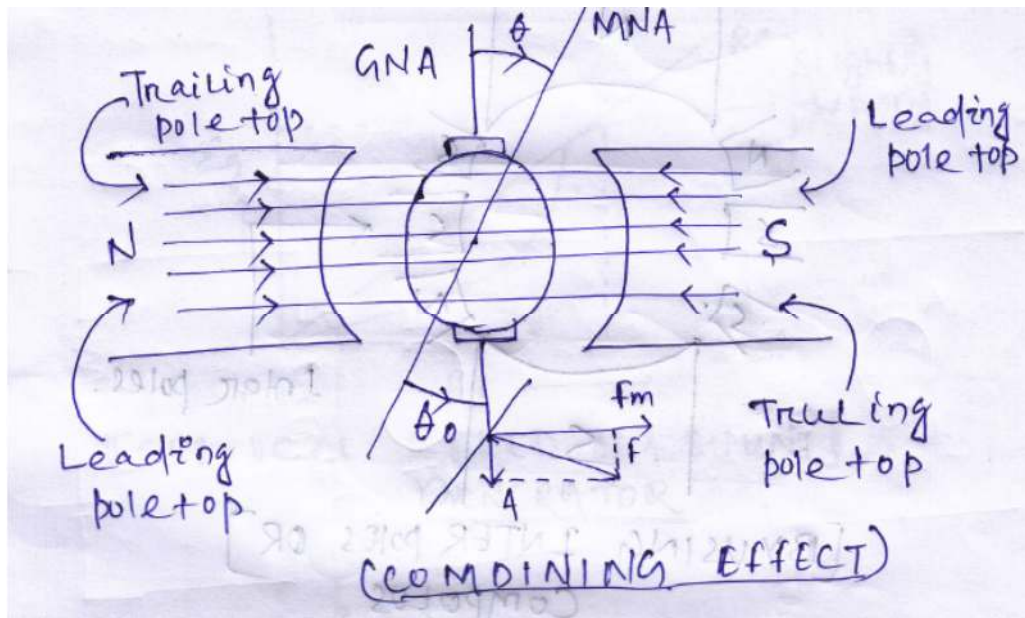 θ
MNA
GNA
Trailing
pole top
Leading
pole top
N
S
θ
fm
F
A
Leading
pole top
Trailing
pole top
(COMDINING EFFECT)